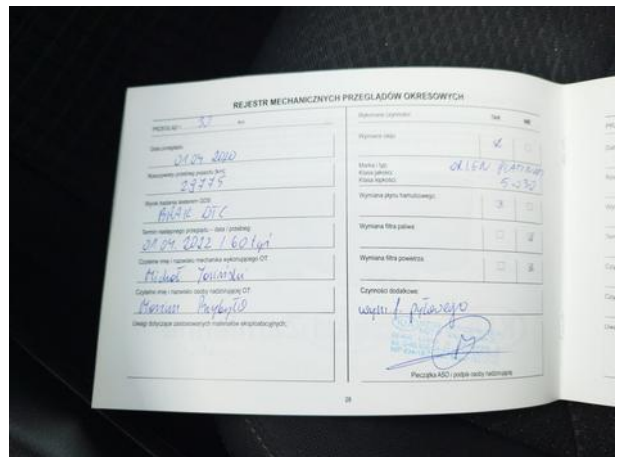 REJESTR MECHANICZNYCH PRZEGLĄDÓW OKRESOWYCH
PRZEGLĄD 30
Data przeglądu:
01.04.2020
Rzeczywisty przebieg pojazdu [km]
29775
Wynik badania testerem GDS
BRAK DTC
Termin następnego przeglądu – data / przebieg
01.04.2022 / 60 tyś
Czytelne imię i nazwisko mechanika wykonującego OT
Michał
Czytelne imię i nazwisko osoby nadzorującej OT
Marian Przybyło
Uwagi dotyczące zastosowanych materiałów eksploatacyjnych:
Wykonane czynności: TAK NIE
Wymiana oleju
Marka i typ: ORLEN PLATINUM
Klasa jakości:
Klasa lepkości: 5W30
Wymiana płynu hamulcowego:
Wymiana filtra paliwa
Wymiana filtra powietrza
Czynności dodatkowe:
wym f. pyłowego
Pieczątka ASO i podpis osoby nadzorującej